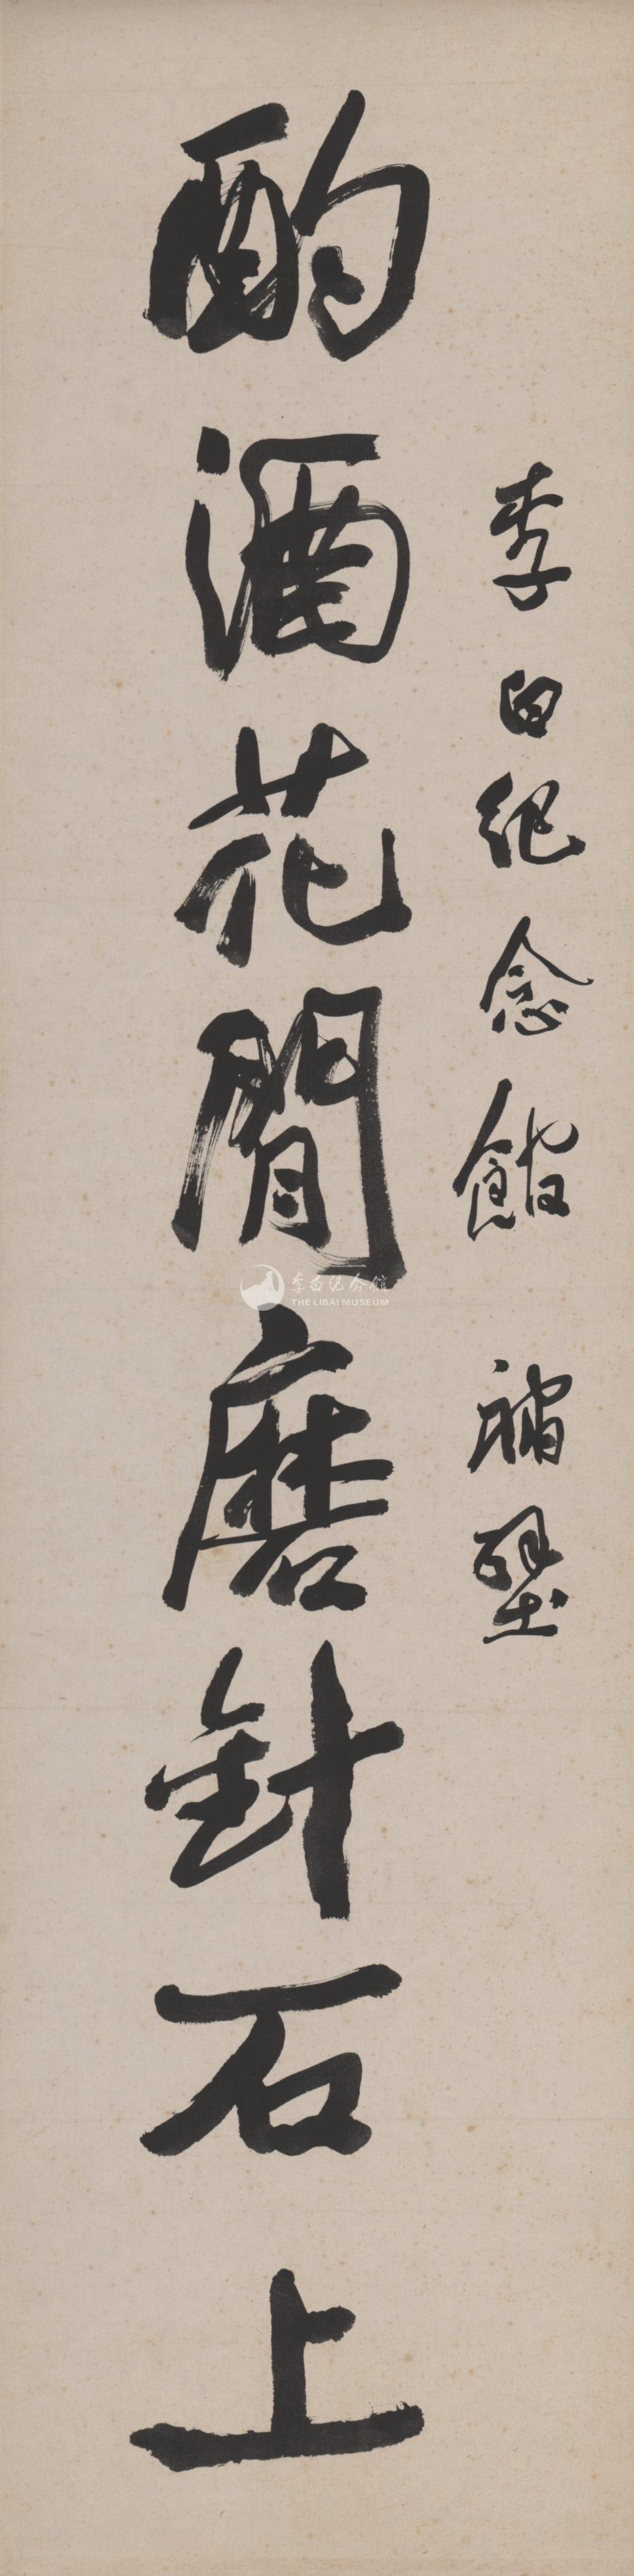 李白纪念館 補壁
酌酒花間磨針石上
李白纪念館
THE LIBAI MUSEUM